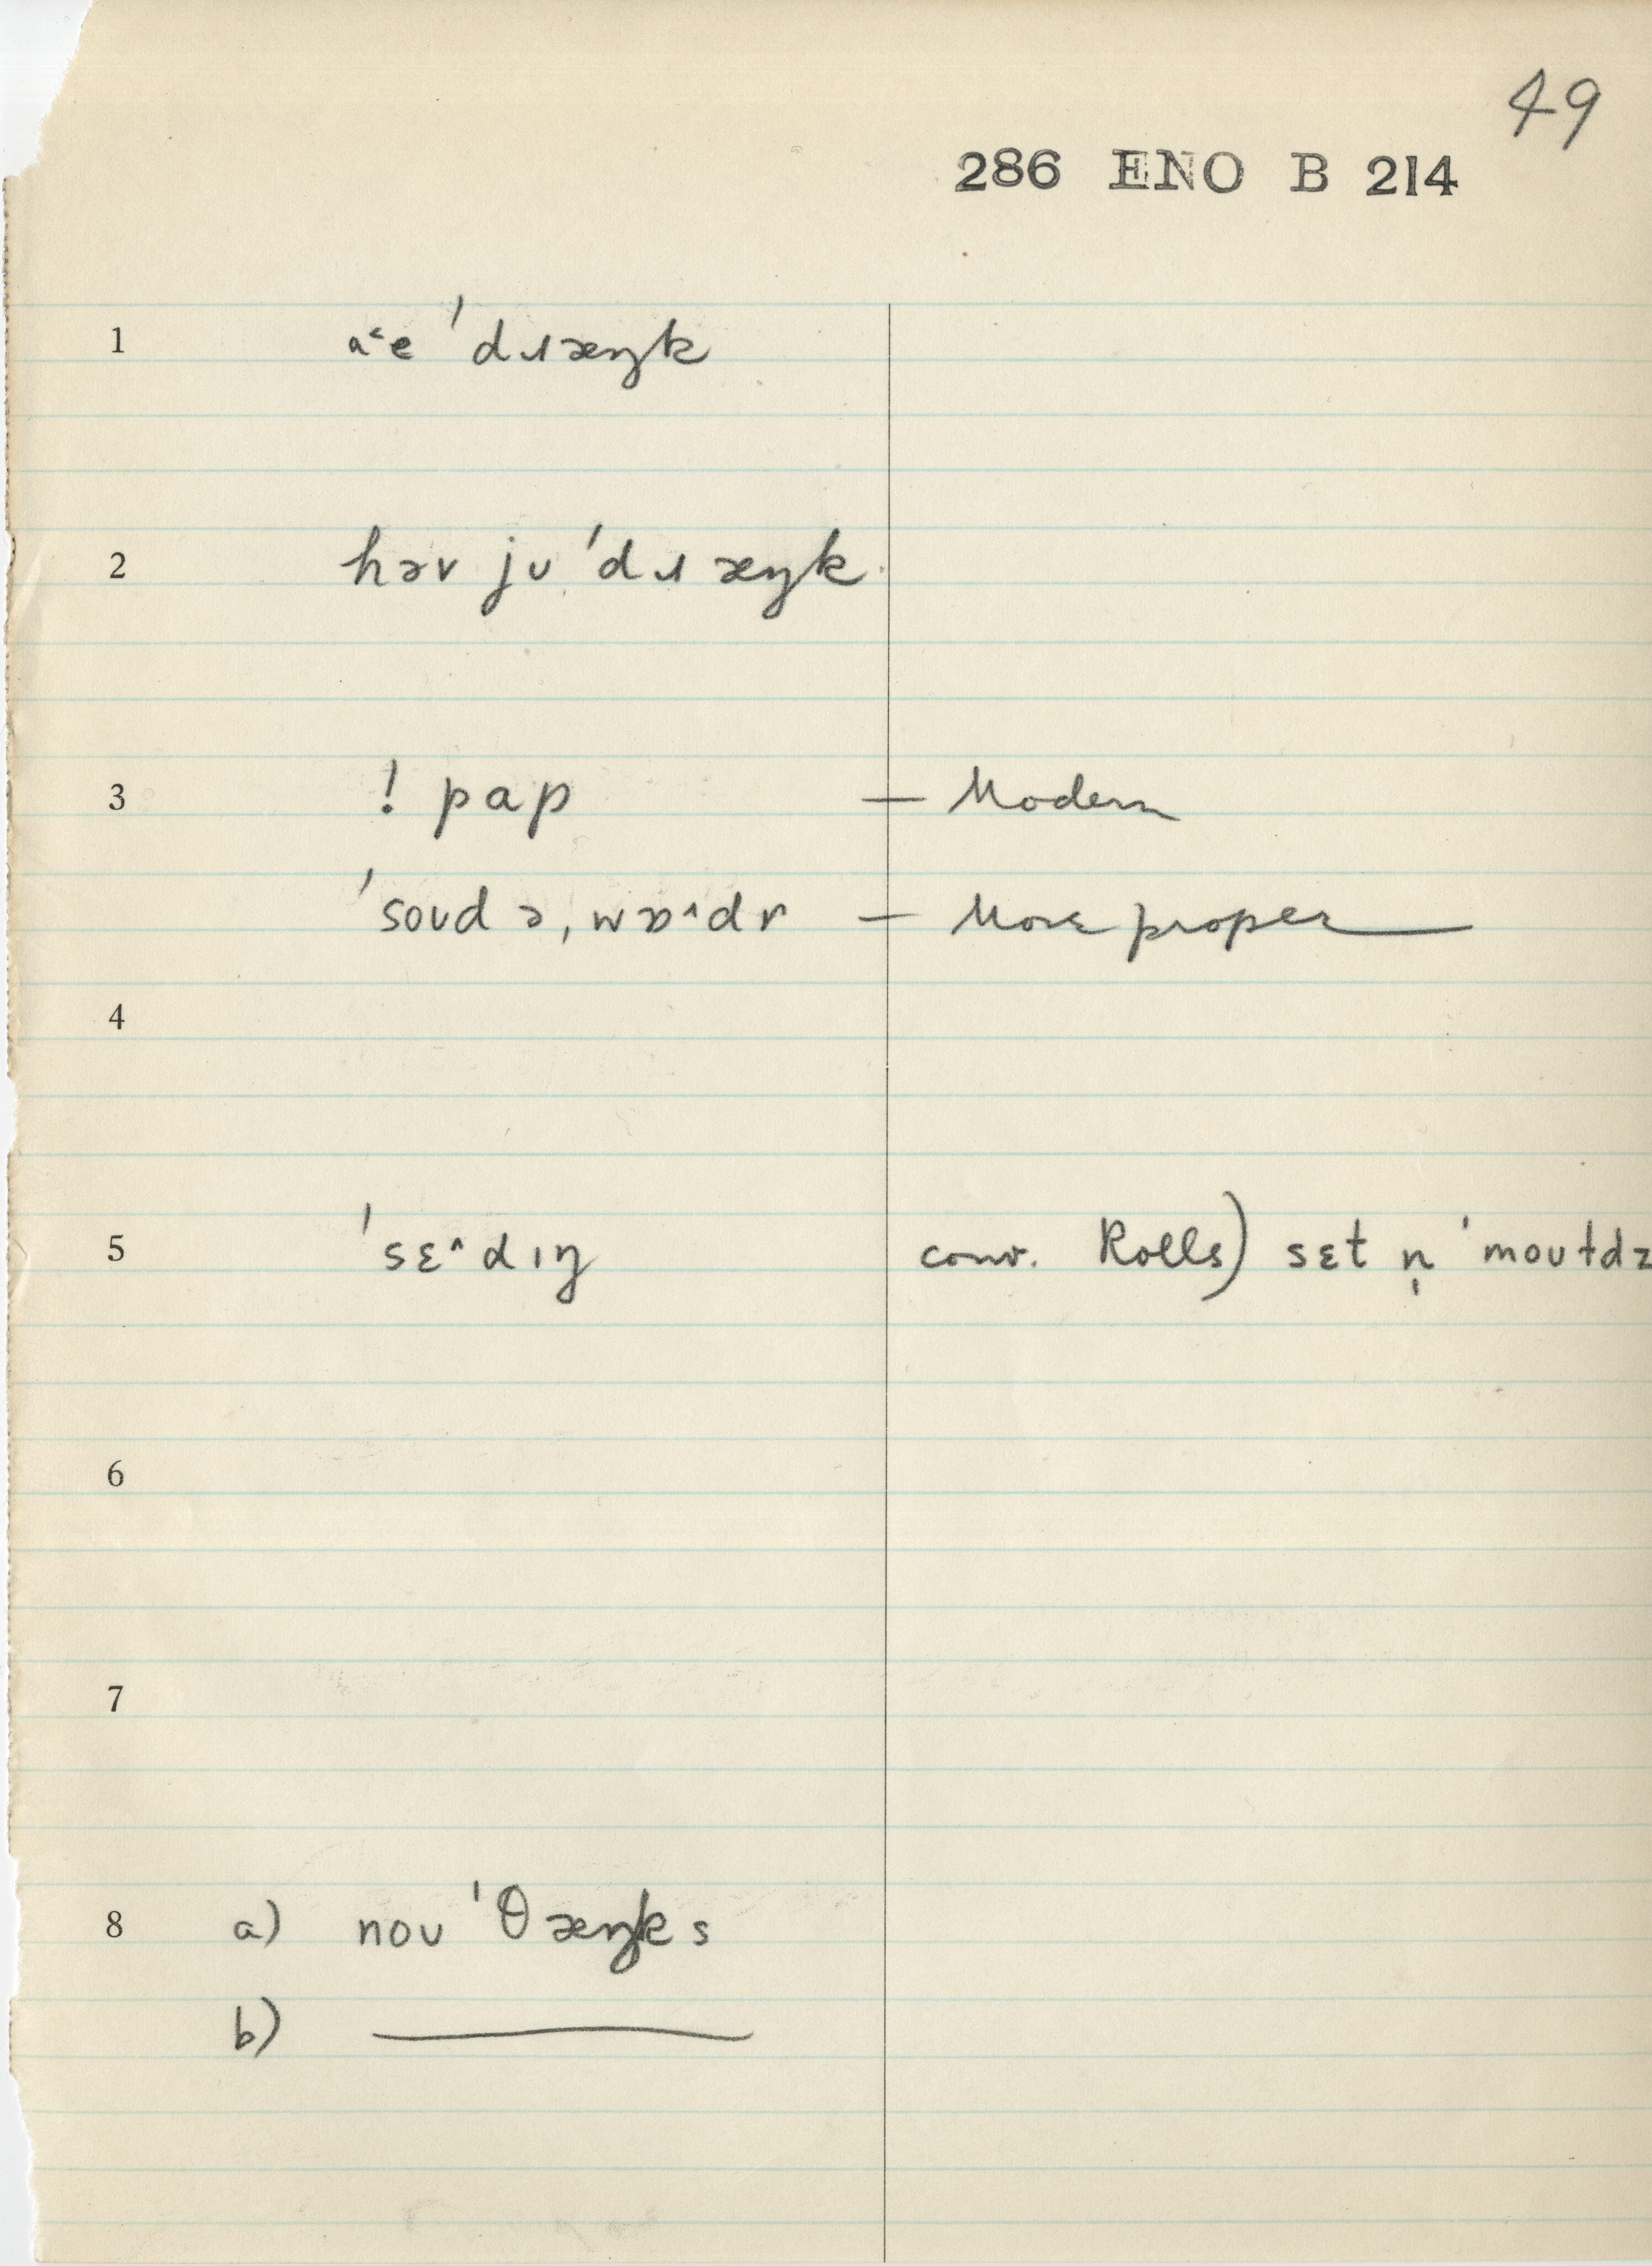 49
286 ENO B 214
1 a˂e ˈdɹæŋk
2 həv jʊ ˈdɹæŋk
3 ! pap — Modern
ˈsoʊdə, wɒ˄dɚ — More proper
4
5 ˈsɛ˄dɪŋ conv. Rolls) sɛt n̩ ˈmoʊɫdz
6
7
8 a) noʊ ˈθæŋks
b) ———